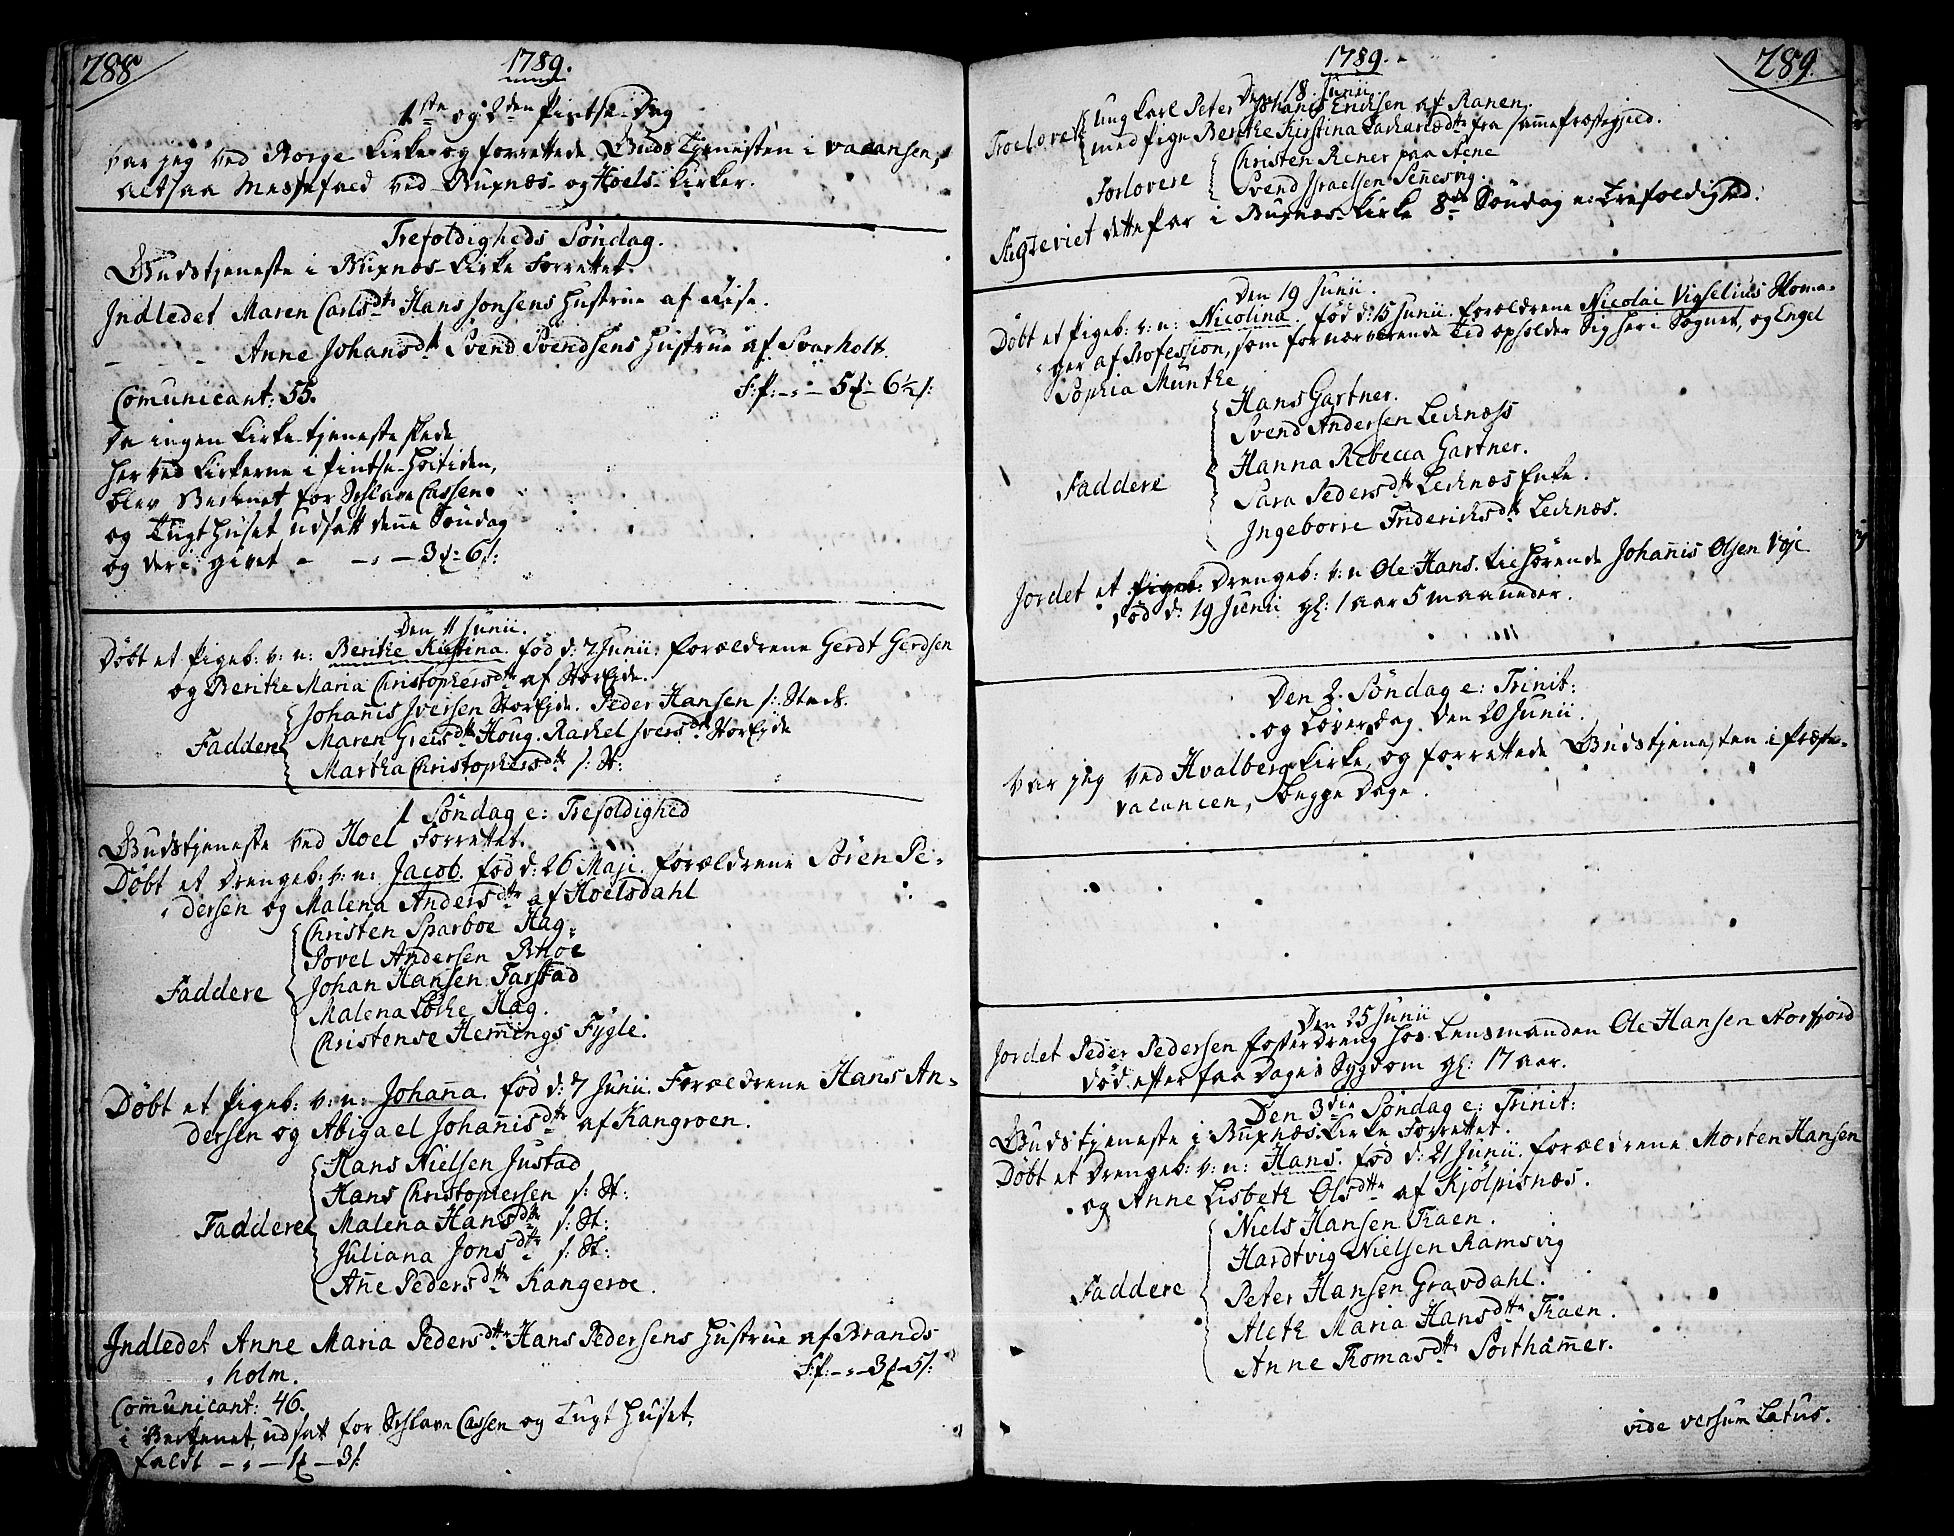 288
1789.
1ste og 2den Pintse-Dag
Var jeg ved Borge Kirke og forrettede Guds Tjenesten i vacansen,
altsaa Messefald ved Buxnæs- og Hoels-Kirker.
Trefoldigheds Søndag.
Gudstjeneste i Buxnæs-Kirke Forrettet.
Indledet Maren Carlsdtr Hans Jonsens Hustrue af Rise.
— - Anne Johansdtr Svend Svendsens Hustrue af Svarholt.
Comunicant: 55.
F:P: -,- 5 - 6½ s:
Da ingen Kirke-tjeneste skede
her ved Kirkerne i Pintse-Høitiden,
blev Bekenet for Sclave Cassen
og Tugthuset udsatt denne Søndag
og deri givet - -,- 3 - 6 s:
Den 11 Junii.
Døbt et Pigeb: v: n: Berithe Kirstina. fød d: 7 Junii. Forældrene Gerdt Gerdsen
og Berithe Maria Christophersdtr af StorEjde.
Johannis Iversen StorEjde. Peder Hansen s: Steds.
Faddere Maren Greisdtr Houg. Rachel Iversdtr StorEjde
Martha Christophersdtr s: St:
1 Søndag e: Trefoldighed
Gudstjeneste ved Hoel Forrettet.
Døbt et Drengeb: v: n: Jacob. fød d: 26 Maji. Forældrene Søren Pe-
dersen og Malena Andersdtr af Hoelsdahl
Christen Sparboe Hag-
Povel Andersen
Johan Hansen Farstad
Faddere
Malena Hag.
Christense Hemings Fygle.
Døbt et Pigeb: v: n: Johanna. fød d: 7 Junii. Forældrene Hans An-
dersen og Abigael Johannisdtr af Kangroen.
Hans Nielsen Justad
Hans Christophersen s: St:
Faddere Malena Hansdtr s: St:
Juliana Jonsdtr s: St:
Anne Pedersdtr Kangeroe.
Indledet Anne Maria Pedersdtr Hans Pedersens Hustrue af Brands
holm.
F:P: -,- 3 - 5 s:
Comunicant: 46.
i Bekenet, udsatt for Sclave Cassen og Tugt Huset,
faldt -,- 1 - 3 s:
1789.
289.
Den 18 Junii.
Troelovet Ung Karl Peter Johanis Erichsen af Ranen,
med Pige Berithe Kirstina Zachariædtr fra samme Præstegield.
Forlovere Christen Rener paa Steene
Svend Israelsen Sennesvig.
Ægteviet dette Par i Buxnæs-Kirke 8de Søndag e: Trefoldighed.
Den 19 Junii.
Døbt et Pigeb: v: n: Nicolina. fød d: 15 Junii. Forældrene Nicolai Vigselius Homa-
ger af Profession, som for nærværende Tid opholder Sig her i Sognet, og Engel
Sophia Munthe
Hans Gartner.
Svend Andersen Lecknæss
Faddere Hanna Rebecca Gartner.
Sara Pedersdtr Lecknæs Enke.
Ingeborre Friderichsdtr Lecknæs.
Jordet et Drengeb: v: n Ole Hans. tilhørende Johannis Olsen Voje
død d: 19 Junii gl: 1 aar 5 maaneder.
Den 2. Søndag e: Trinit:
og Løverdag Den 20 Junii.
Var jeg ved Hvalberg Kirke, og forrettede Gudstjenesten i Præste-
vacancen, begge Dage.
Den 25 Junii
Jordet Peder Pedersen fosterdreng hos Lensmanden Ole Hansen Storfjord
død efter faa Dages Sygdom gl: 17 aar.
Den 3die Søndag e: Trinit:
Gudstjeneste i Buxnæs-Kirke Forrettet.
Døbt et Drengeb: v: n: Hans. fød d: 21 Junii. Forældrene Morten Hansen
og Anne Lisbeth Olsdtr af Kjølpisnæs.
Niels Hansen Traen.
Hardtvig Nielsen Ramsvig
Faddere Peter Hansen Gravdahl.
Aleth Maria Hansdtr Traen.
Anne Thomasdtr Sorthammer.
vide versum Latus.